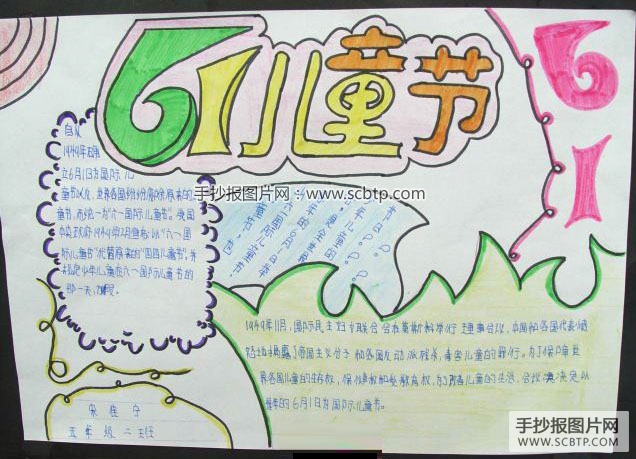 61儿童节
61
手抄报图片网::www.scbtp.com
自从
1949年
立6月1日为国际儿
童节以后,世界各国纷纷废除原来的
童节,而统一为"六一国际儿童节"。我国
中央
际儿童节"代替原来的"四四儿童节"。并
少年儿童在六一国际儿童节的
那一天,
1949年11月,国际民主妇女联合会在莫斯科举行理事会议,中国和各国代表愤
怒地揭露了帝国主义分子和各国反动派残杀、毒害儿童的罪行。为了保障世
界各国儿童的生存权、保健权和受教育权,为了改善儿童的生活,会议决定以
每年的6月1日为国际儿童节。
宋佳宁
五年级二
手抄报图片网
WWW.SCBTP.COM